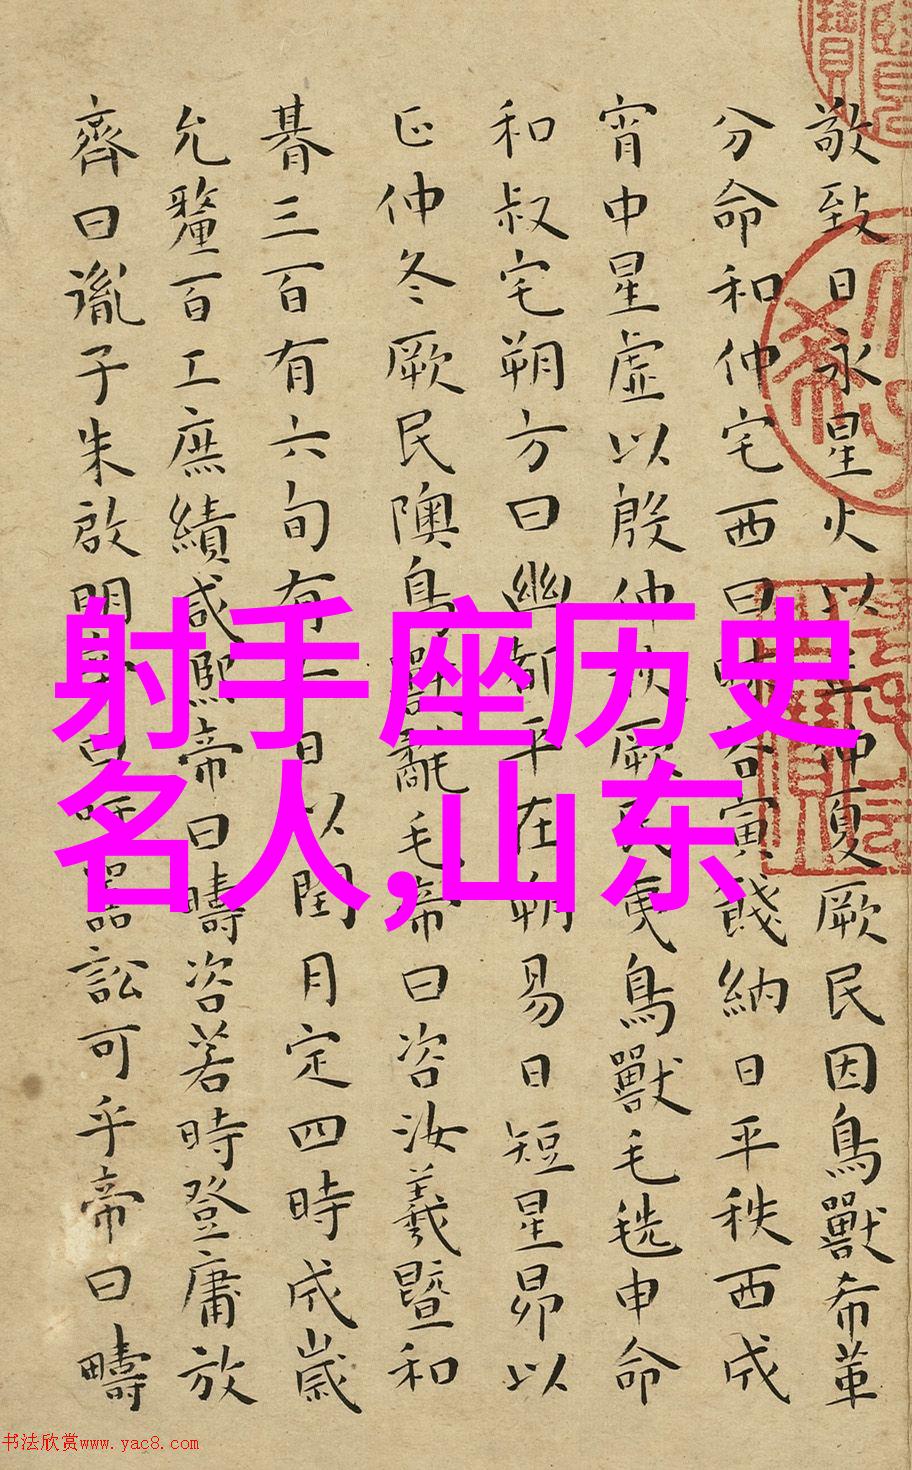 射手座历史
名人,山东
敬致日永星火以正仲夏厥民因鳥獸希革
分命和仲宅西曰昧谷寅餞納日平秩西成
宵中星虛以殷仲秋厥民夷鳥獸毛毨申命
和叔宅朔方曰幽都平在朔易日短星昴以
正仲冬厥民隩鳥獸氄毛帝曰咨汝羲暨和
朞三百有六旬有六日以閏月定四時成歲
允釐百工庶績咸熙帝曰疇咨若時登庸放
齊曰胤子朱啟明帝曰吁嚚訟可乎帝曰疇
书法欣赏www.yac8.com